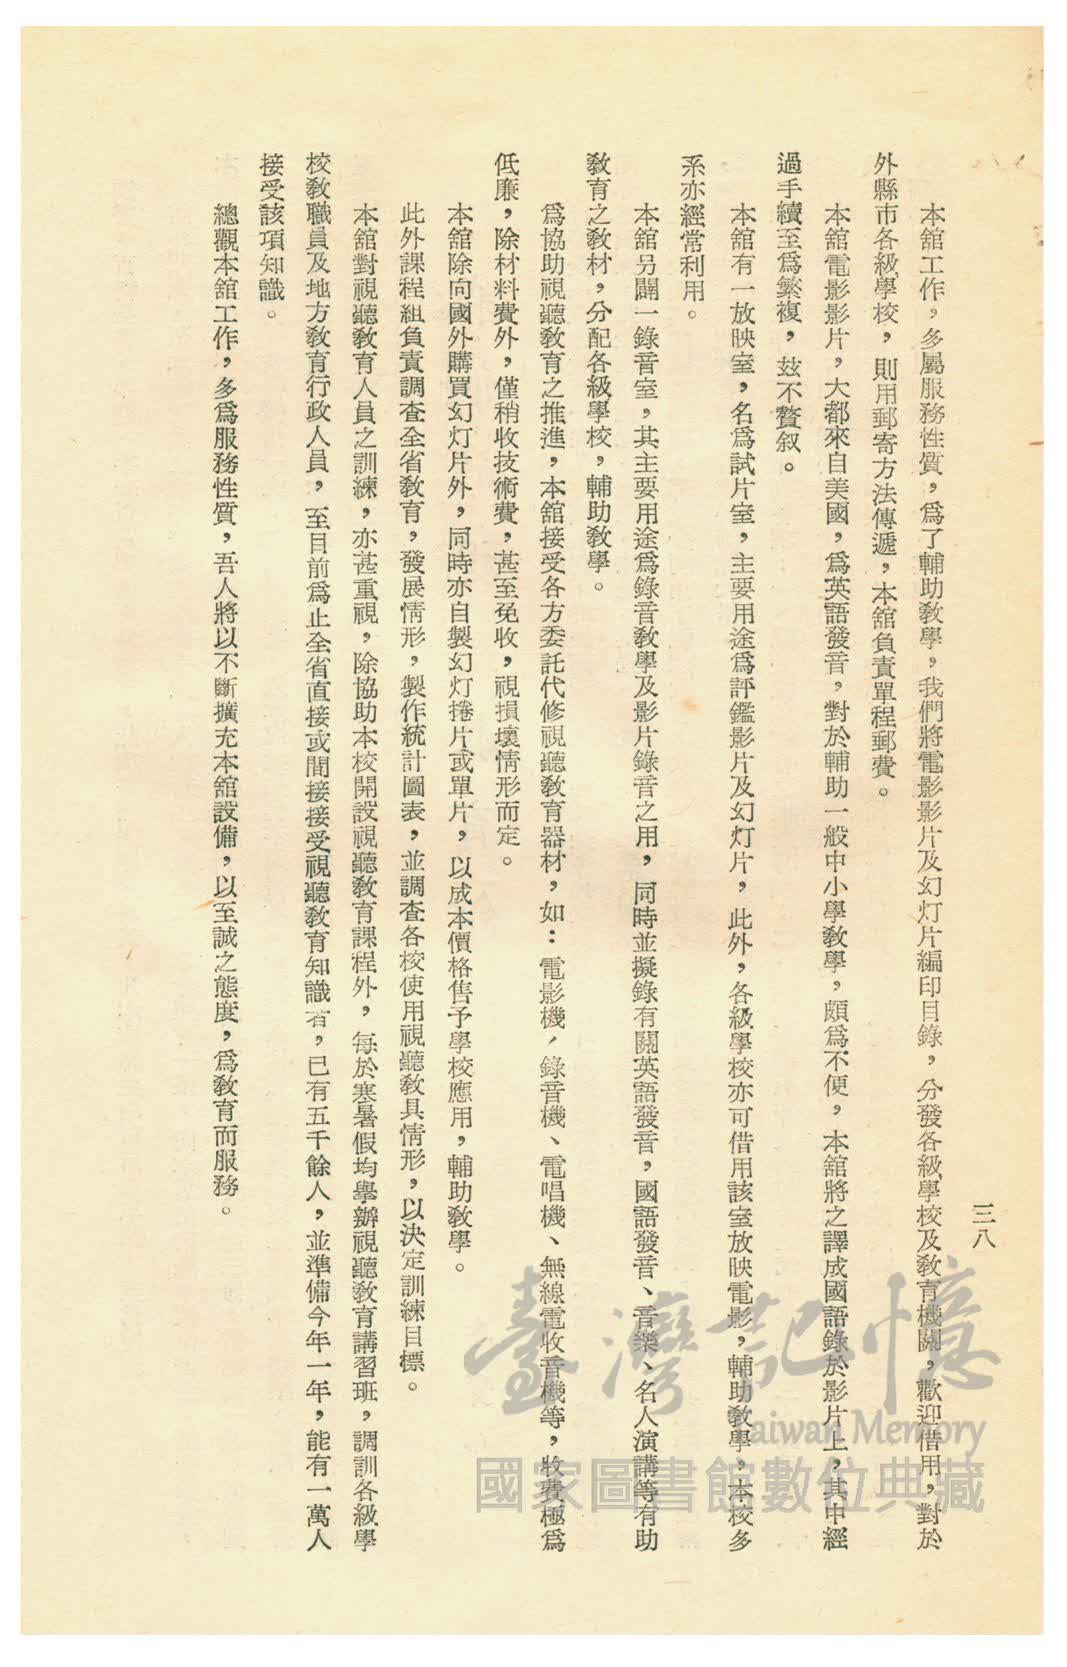 三八
本舘工作，多屬服務性質，爲了輔助教學，我們將電影影片及幻灯片編印目錄，分發各級學校及教育機關，歡迎借用，對於
外縣市各級學校，則用郵寄方法傳遞，本舘負責單程郵費。
本舘電影影片，大都來自美國，爲英語發音，對於輔助一般中小學教學，頗爲不便，本舘將之譯成國語錄於影片上，其中經
過手續至爲繁複，玆不贅叙。
本舘有一放映室，名爲試片室，主要用途爲評鑑影片及幻灯片，此外，各級學校亦可借用該室放映電影，輔助教學，本校多
系亦經常利用。
本舘另闢一錄音室，其主要用途爲錄音教學及影片錄音之用，同時並擬錄有關英語發音，國語發音、音樂、名人演講等有助
教育之教材，分配各級學校，輔助教學。
爲協助視聽教育之推進，本舘接受各方委託代修視聽教育器材，如：電影機，錄音機、電唱機、無線電收音機等，收費極爲
低廉，除材料費外，僅稍收技術費，甚至免收，視損壞情形而定。
本舘除向國外購買幻灯片外，同時亦自製幻灯捲片或單片，以成本價格售予學校應用，輔助教學。
此外課程組負責調査全省教育，發展情形，製作統計圖表，並調査各校使用視聽教具情形，以決定訓練目標。
本舘對視聽教育人員之訓練，亦甚重視，除協助本校開設視聽教育課程外，每於寒暑假均舉辦視聽教育講習班，調訓各級學
校教職員及地方教育行政人員，至目前爲止全省直接或間接接受視聽教育知識者，已有五千餘人，並準備今年一年，能有一萬人
接受該項知識。
總觀本舘工作，多爲服務性質，吾人將以不斷擴充本舘設備，以至誠之態度，爲教育而服務。
臺灣記憶
Taiwan Memory
國家圖書館數位典藏